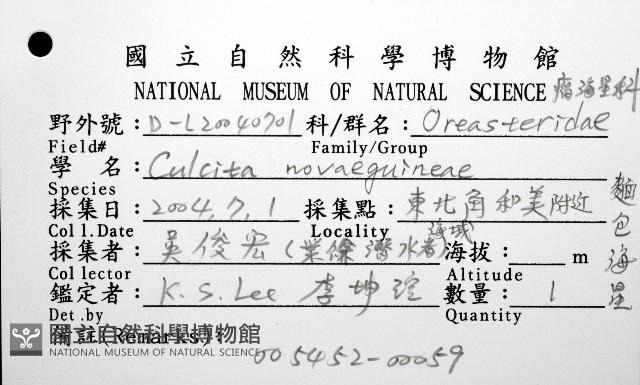 國立自然科學博物館
NATIONAL MUSEUM OF NATURAL SCIENCE 瘤海星科
野外號：D-L20040701 科/群名：Oreasteridae
Field# Family/Group
學名：Culcita novaeguineae
Species
採集日：2004.7.1 採集點：東北角和美附近
海域
Coll.Date Locality
採集者：吳俊宏(業餘潛水者) 海拔： m
Collector Altitude
鑑定者：K.S.Lee 李坤瑄 數量：1
Det.by Quantity
麵包海星
備註(Remarks)：
國立自然科學博物館
NATIONAL MUSEUM OF NATURAL SCIENCE
005452-00059